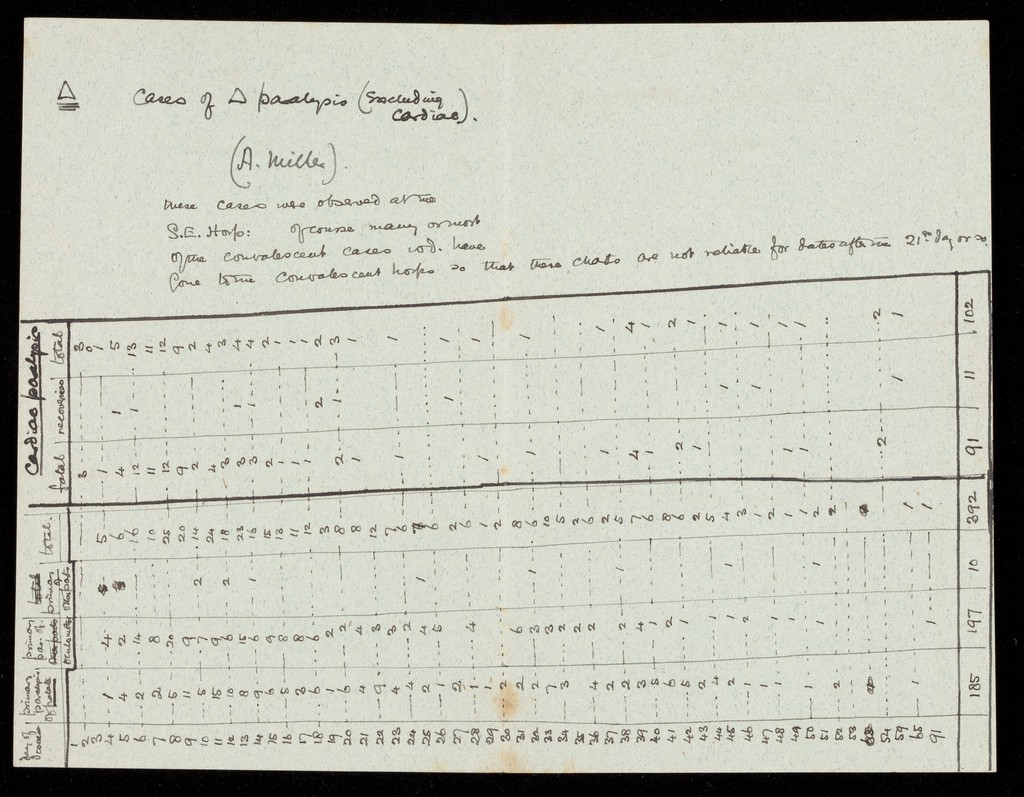 Δ
Cases of Δ paralysis (excluding
cardiac).
(A. Miller).
These cases were observed at the
S.E. Hosp: Of course many or most
of the convalescent cases wd. have
gone to the convalescent hosps so that these charts are not reliable for dates after the 21st day or so.
Cardiac paralysis
total 3 0 1 5 13 11 12 9 2 4 3 4 4 2 1 1 1 2 3 1 1 1 1 1 1 4 1 2 1 1 1 1 1 2 1 102
recoveries 1 1 1 1 2 1 1 1 1 1 11
fatal 3 1 4 12 11 12 9 2 4 3 3 3 2 1 1 1 2 1 1 1 1 4 1 2 1 1 1 2 91
total 5 6 16 10 25 20 14 24 18 23 16 15 13 11 12 3 8 8 12 7 6 7 6 2 6 1 2 8 6 10 5 2 6 2 5 7 6 8 6 2 5 4 3 1 2 1 1 2 2 1 1 392
primary of other pts. 2 2 1 1 1 1 1 1 10
primary par. of oculomotor 4 2 14 8 20 9 7 9 6 15 6 9 8 8 6 2 2 4 3 3 2 4 5 4 6 3 3 2 2 2 2 4 1 2 1 1 1 2 1 1 1 2 1 197
primary paralysis of palate 1 4 2 2 5 11 5 15 10 8 9 6 5 3 6 1 6 4 9 4 4 2 1 2 1 1 2 2 2 7 3 4 2 2 3 5 6 5 2 4 2 1 1 1 1 2 1 185
day of disease 1 2 3 4 5 6 7 8 9 10 11 12 13 14 15 16 17 18 19 20 21 22 23 24 25 26 27 28 29 30 31 32 33 34 35 36 37 38 39 40 41 42 43 44 45 46 47 48 49 50 51 52 53 54 59 65 91